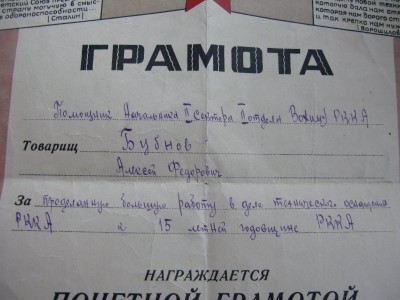 ветский Союз
страну могучую в смыс-
обороноспособности...
Сталин
новой техни
которую дала нам
которая нам дорого ст
и так крепко нам нуж
Ворошилов
ГРАМОТА
Помощник Начальника I Сектора II отдела РККА
Товарищ Бубнов
Алексей Федорович
За проделанную большую работу в деле технического оснащения
РККА к 15 летней годовщине РККА
НАГРАЖДАЕТСЯ
ПОЧЕТНОЙ ГРАМОТОЙ